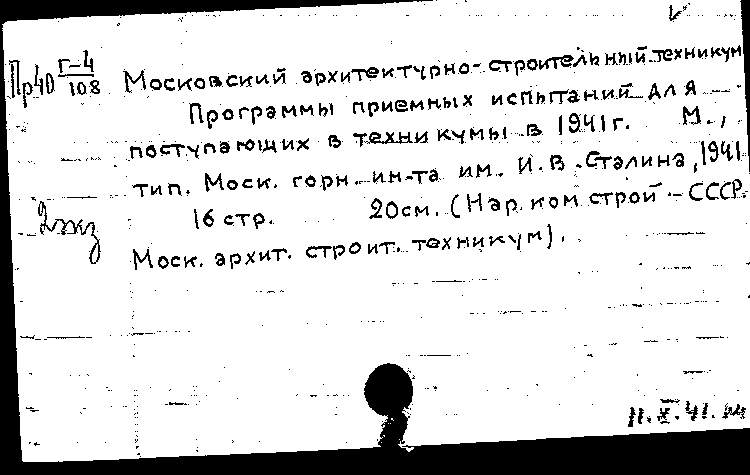 Пр40 Г-4/108 Московский архитектурно-строительный техникум
Программы приемных испытаний для
поступающих в техникумы в 1941 г. М.,
тип. Моск. горн. ин-та им. И.В. Сталина, 1941
16 стр. 20см. (Нар.ком строй - СССР.
2 экз
Моск. архит. строит. техникум).
11.X.41.